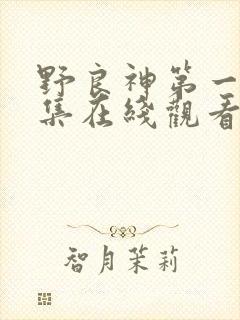 野良神第一
集在綫觀看
智月茉莉